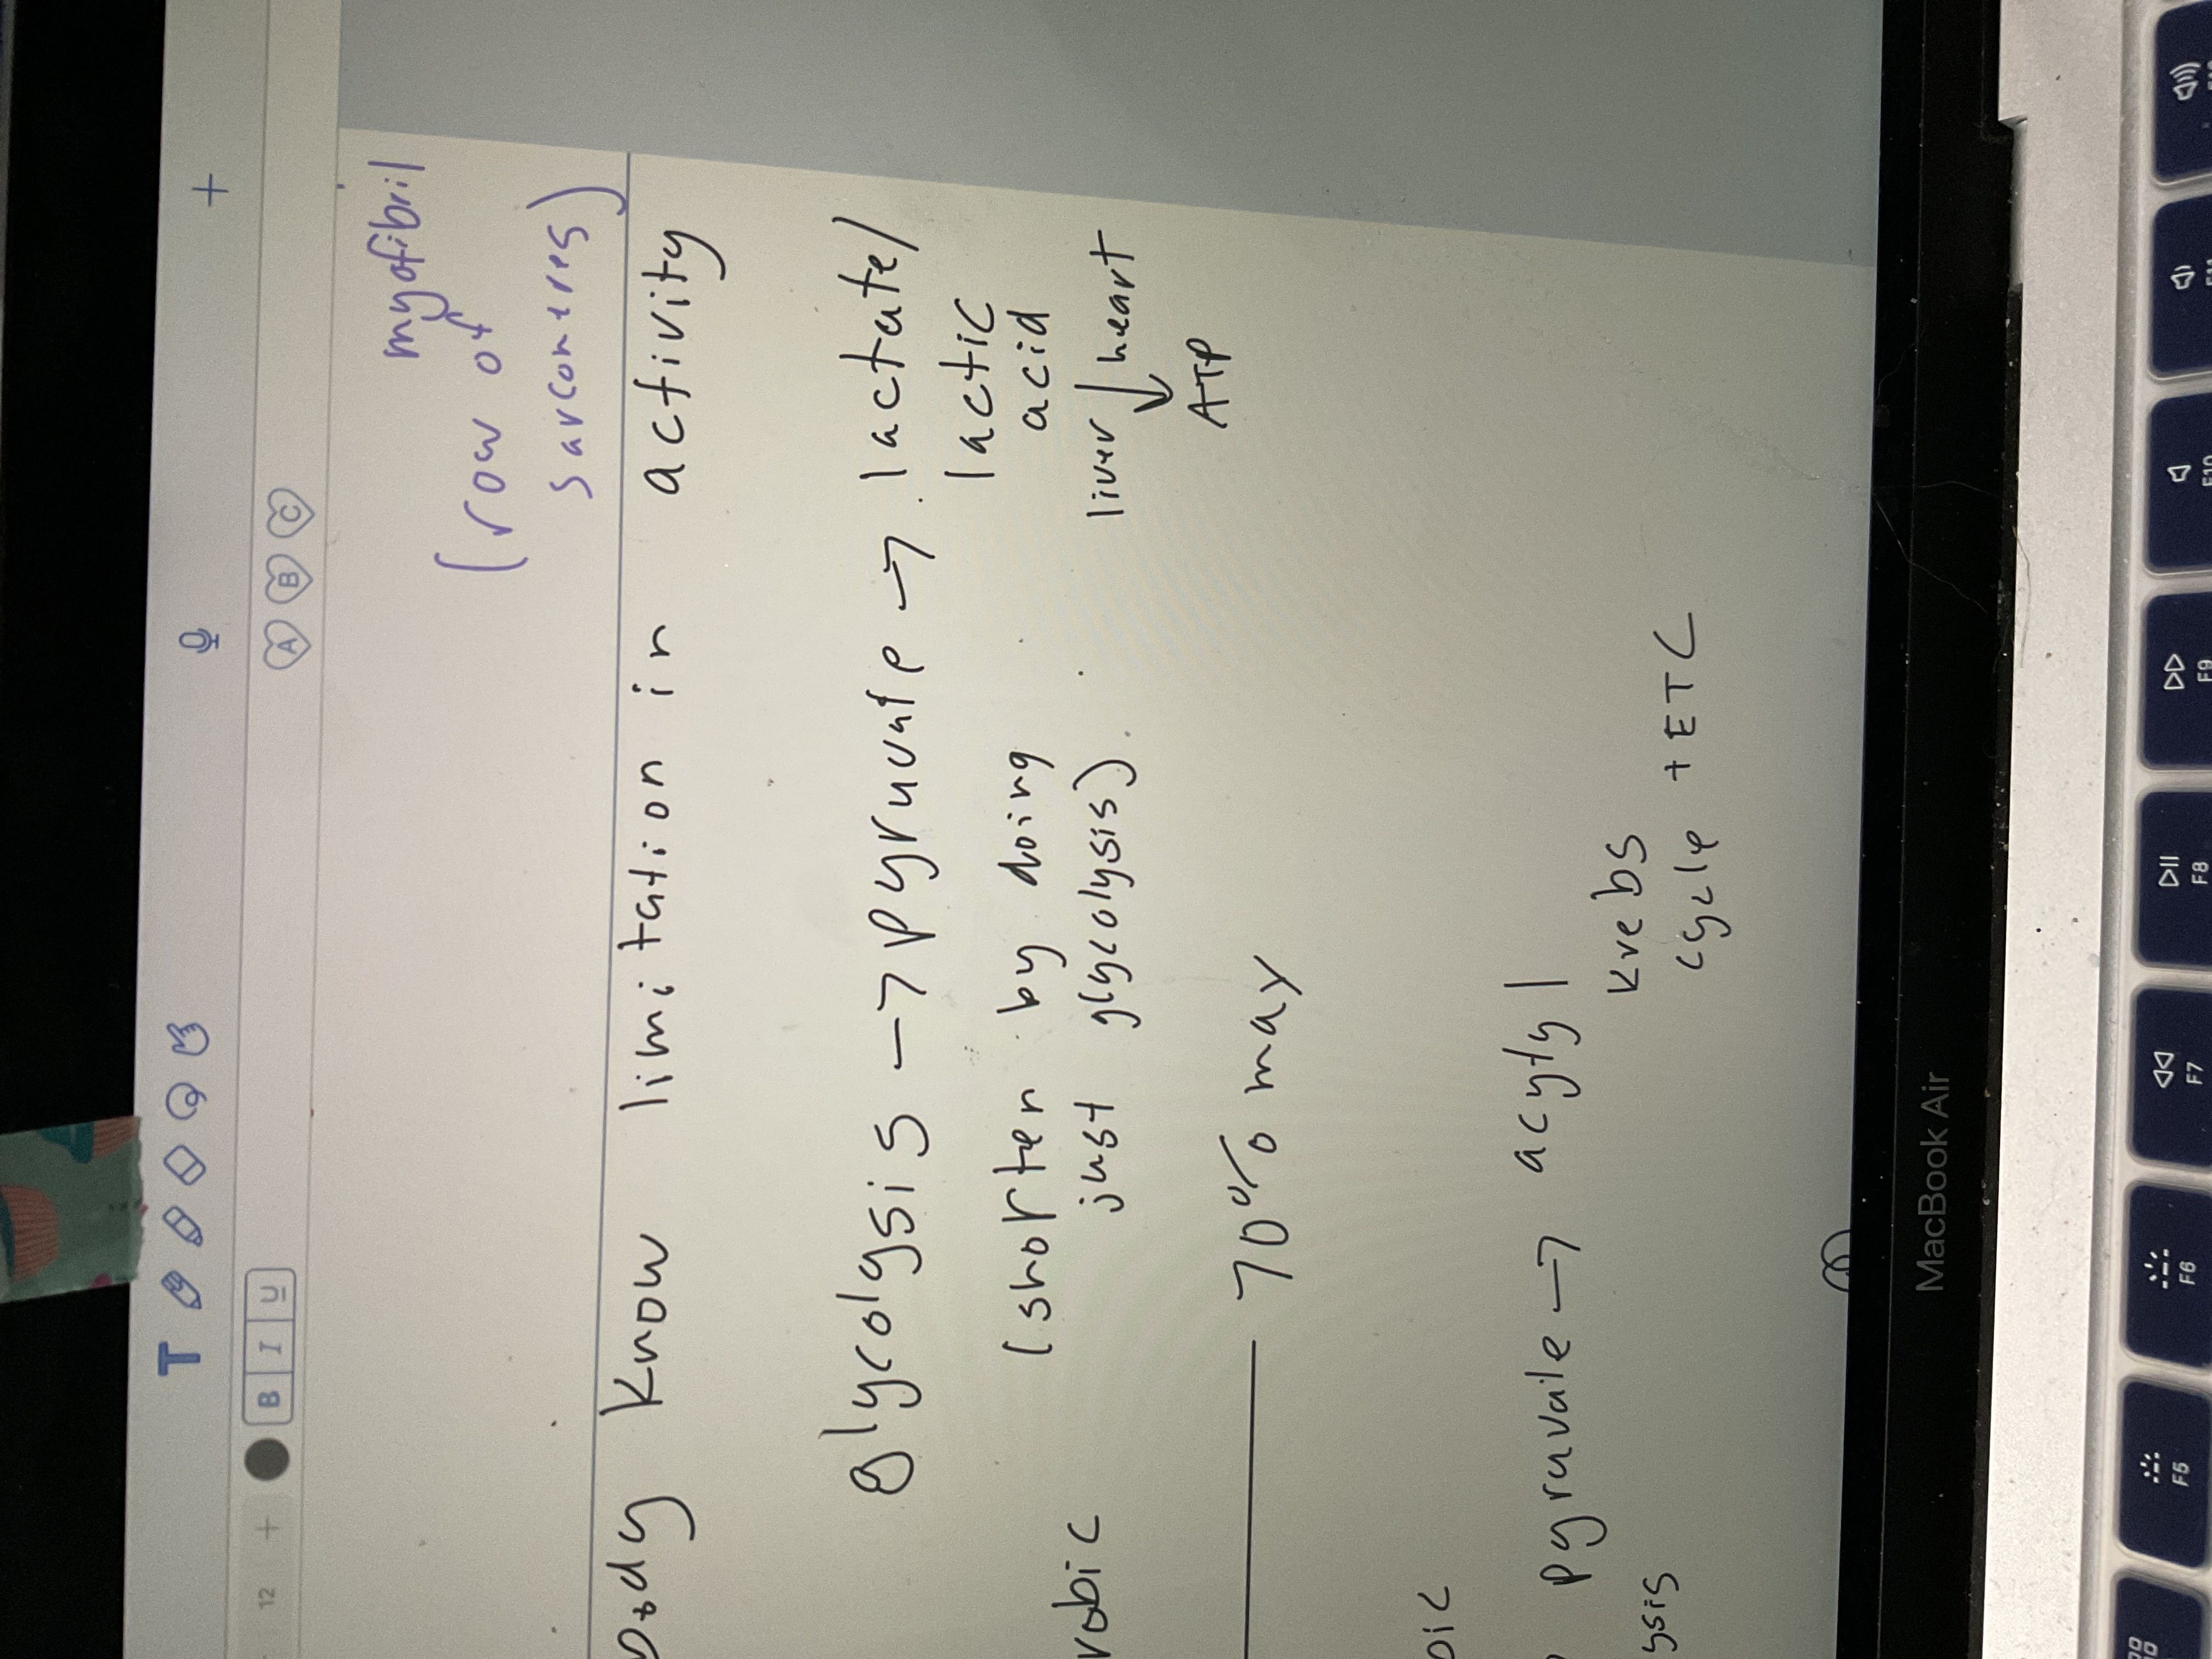 T
12 + B I U
A B C
myofibril
(row of
sarcomeres)
body know limitation in activity
glycolysis → pyruvate → lactate/
lactic
acid
(shorten by doing
just glycolysis)
robic
liver heart
ATP
70% max
bic
pyruvate → acytyl
krebs
ysis
cycle + ETC
MacBook Air
F5 F6 F7 F8 F9 F10